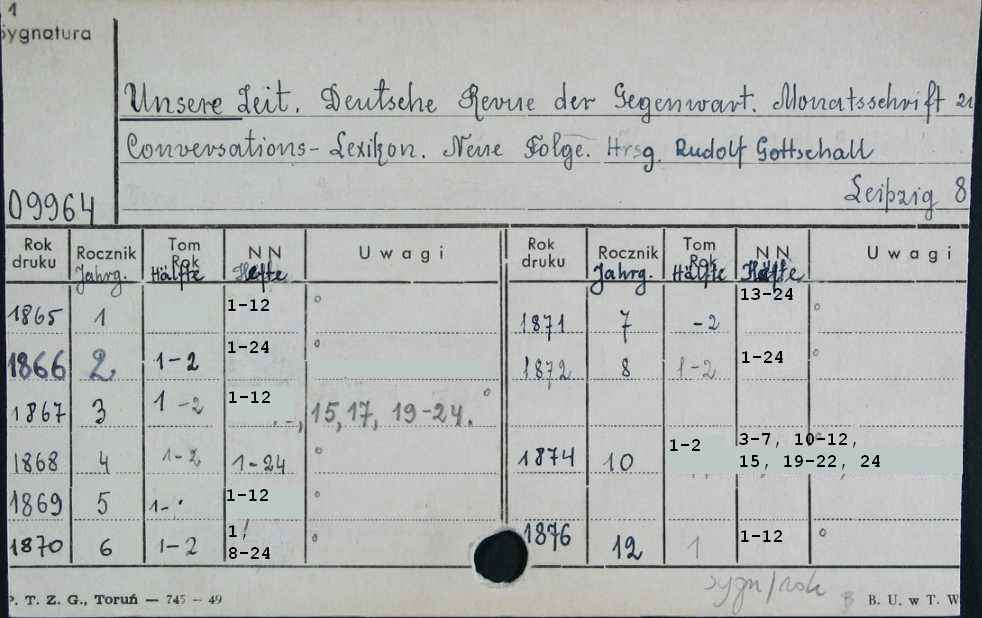 1
Sygnatura
Unsere Zeit. Deutsche Revue der Gegenwart. Monatsschrift
Conversations-Lexikon. Neue Folge. Hrsg. Rudolf Gottschall
Leipzig 8
09964
Rok druku Rocznik Jahrg. Tom Rok Hälfte NN Hefte Uwagi Rok druku Rocznik Jahrg. Tom Rok Hälfte NN Hefte Uwagi
1865 1 1-12 ° 1871 7 -2 13-24 °
1866 2 1-2 1-24 ° 1872 8 1-2 1-24 °
1867 3 1-2 1-12 , 15, 17, 19-24. °
1868 4 1-2 1-24 ° 1874 10 1-2 3-7, 10-12, 15, 19-22, 24
1869 5 1- 1-12 °
1870 6 1-2 1/ 8-24 ° 1876 12 1 1-12 °
sygn/rok
P. T. Z. G., Toruń — 745 — 49 B. U. w T. W